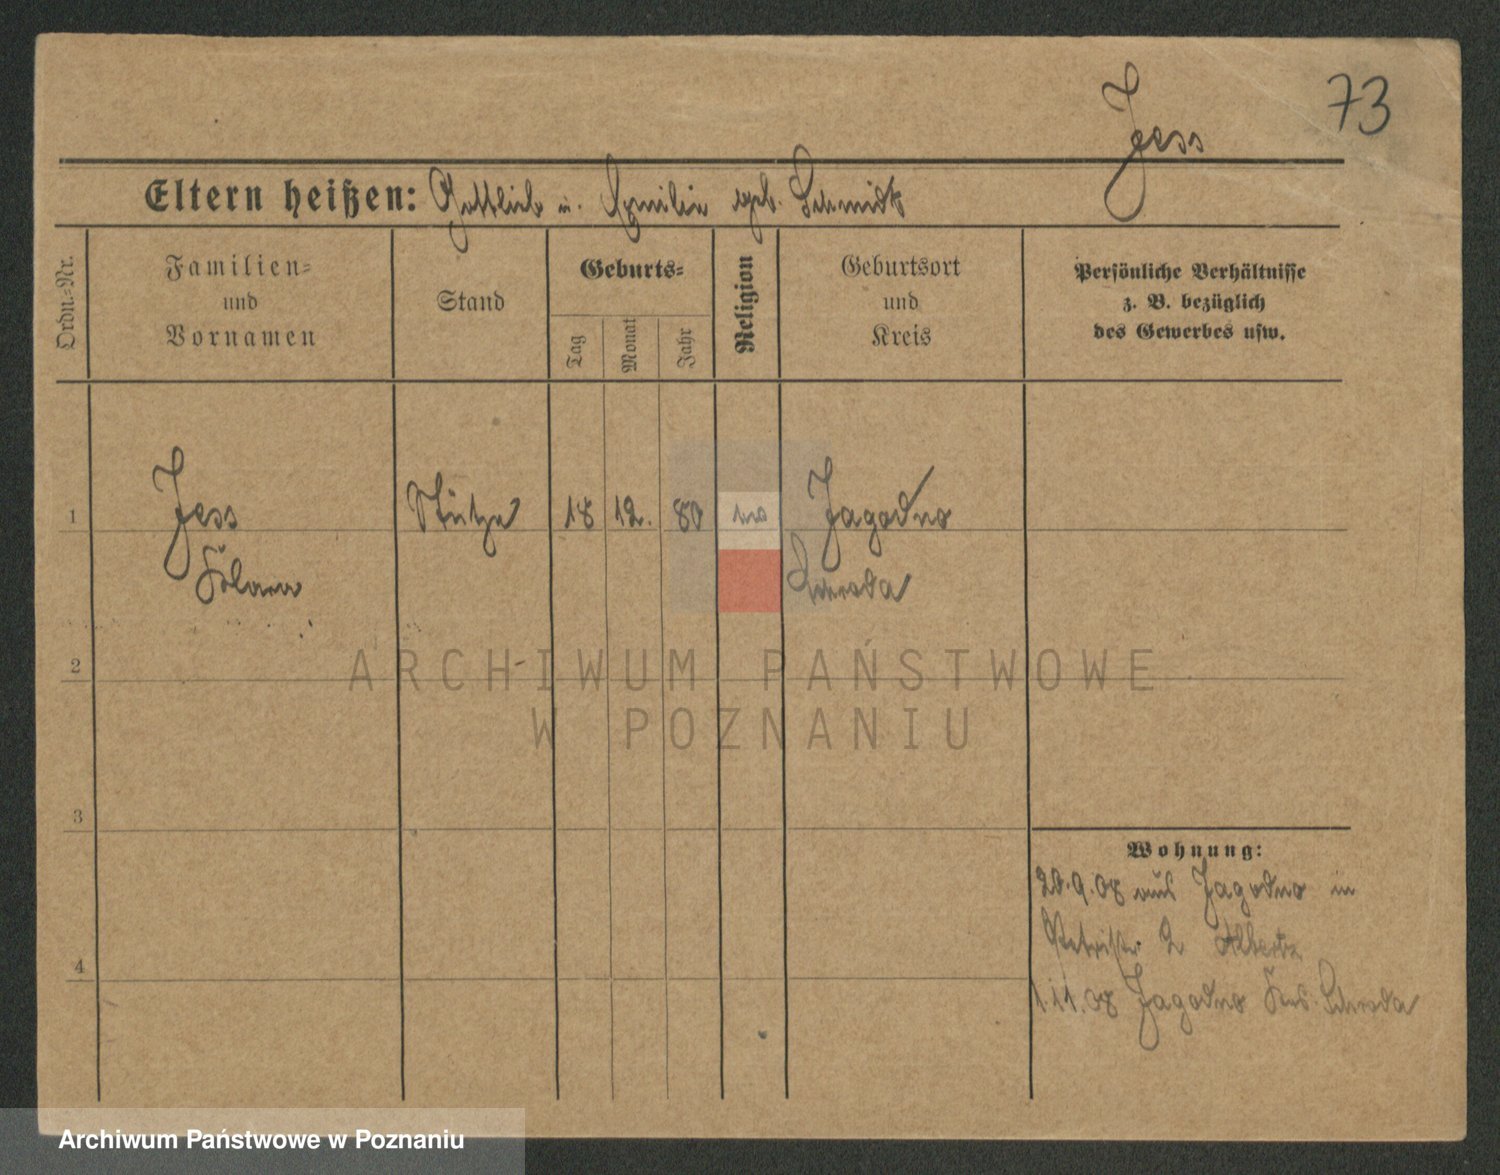 73
Jess
Eltern heißen: Gottlieb u. Emilie geb. Schmidt
Ordn.-Nr.
Familien-
und
Vornamen
Stand
Geburts-
Tag
Monat
Jahr
Religion
Geburtsort
und
Kreis
Persönliche Verhältnisse
z. B. bezüglich
des Gewerbes usw.
1
Jess
Klara
Stütze
18
12.
80
Jagodno
Schroda
2
3
4
ARCHIWUM PAŃSTWOWE
W POZNANIU
Wohnung:
20.9.08 aus Jagodno in
Petristr. 2
1.11.08 Jagodno Krs. Schroda
Archiwum Państwowe w Poznaniu